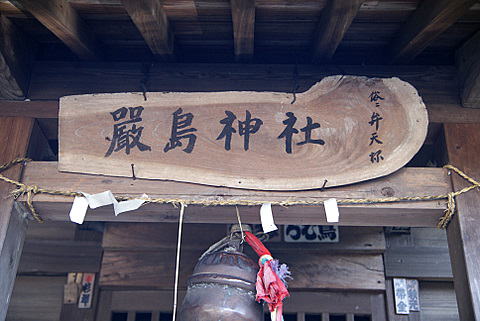 嚴島神社
俗ニ弁天祢